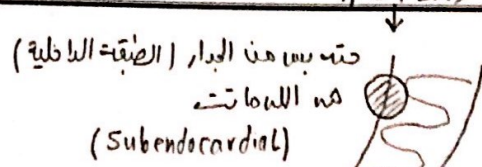 حته بس من الجدار (الطبقة الداخلية)
هى اللى ماتت
(Subendocardial)